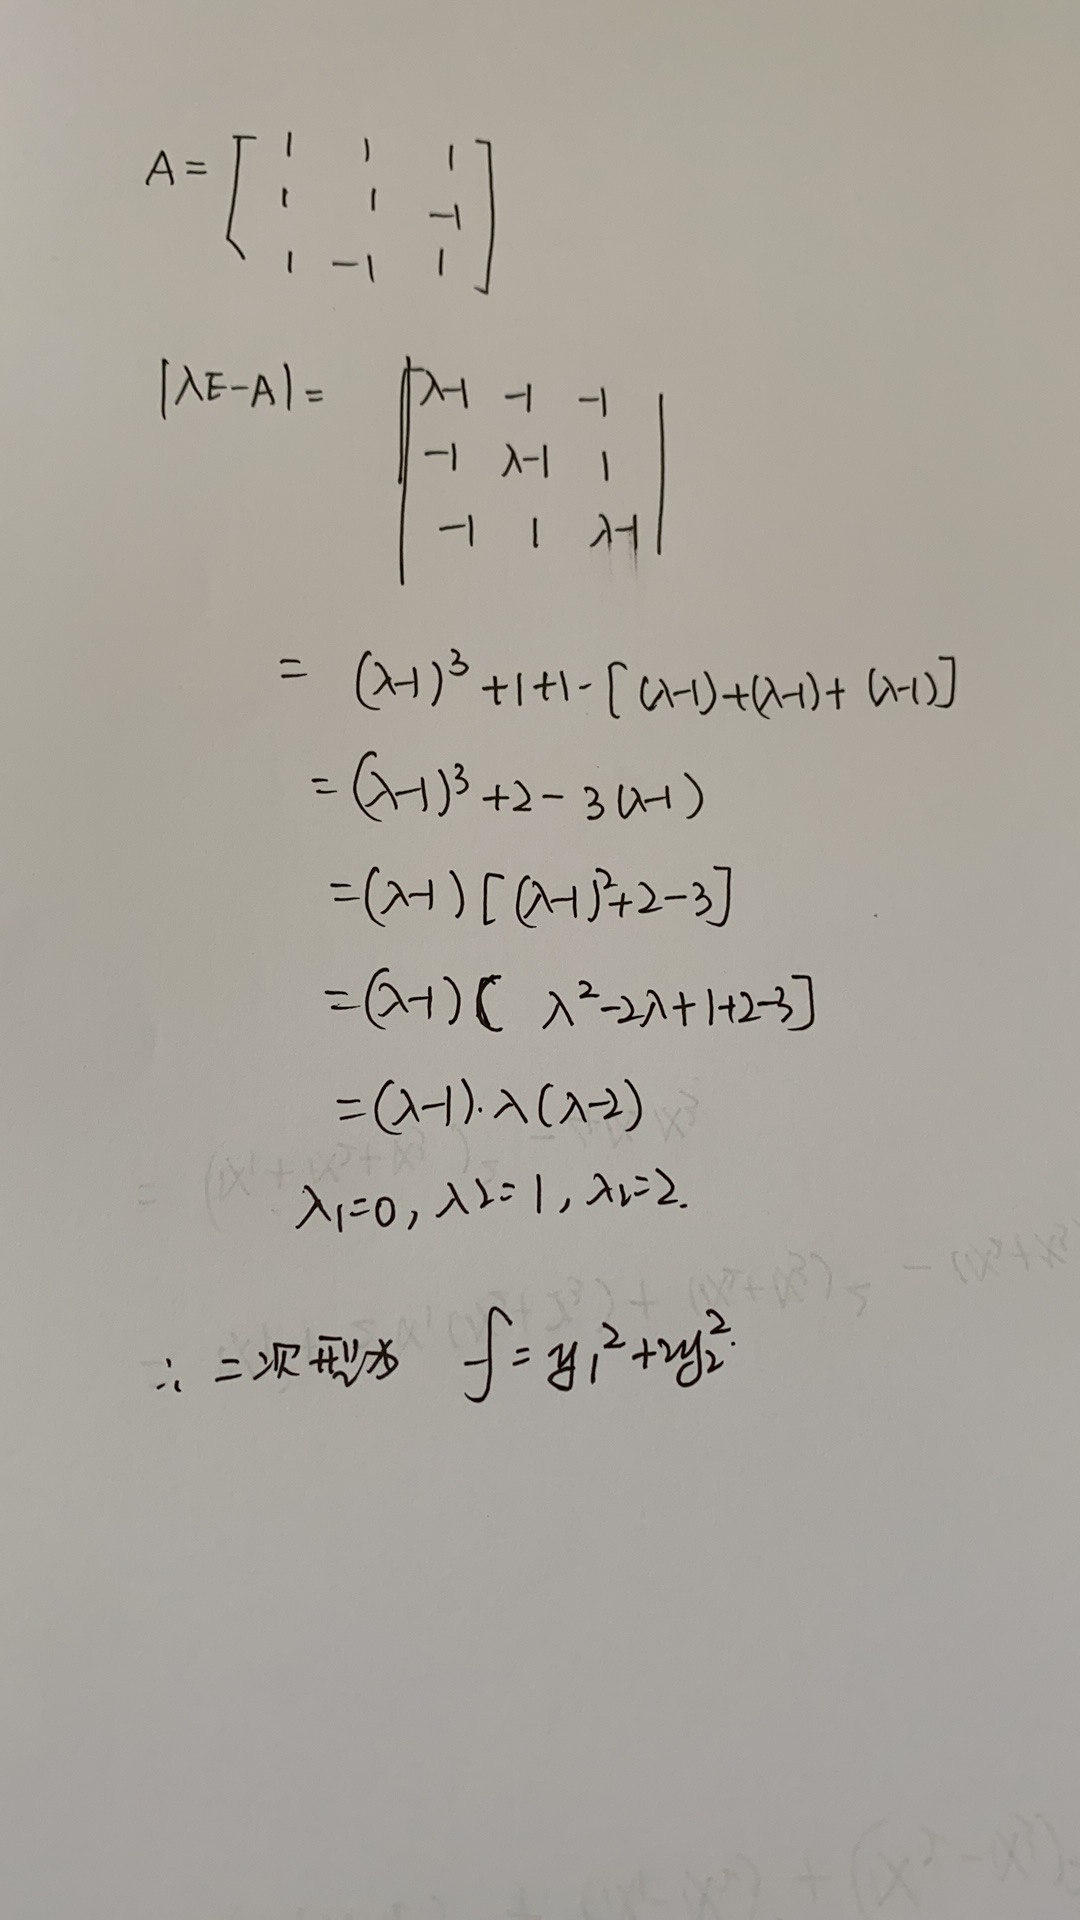 A= [ 1 1 1
1 1 -1
1 -1 1 ]
|λE-A|= | λ-1 -1 -1
-1 λ-1 1
-1 1 λ-1 |
= (λ-1)³+1+1-[(λ-1)+(λ-1)+(λ-1)]
=(λ-1)³+2-3(λ-1)
=(λ-1)[(λ-1)²+2-3]
=(λ-1)[λ²-2λ+1+2-3]
=(λ-1)·λ(λ-2)
λ₁=0, λ₂=1, λ₂=2.
∴ 二次型为 f=y₁²+2y₂².